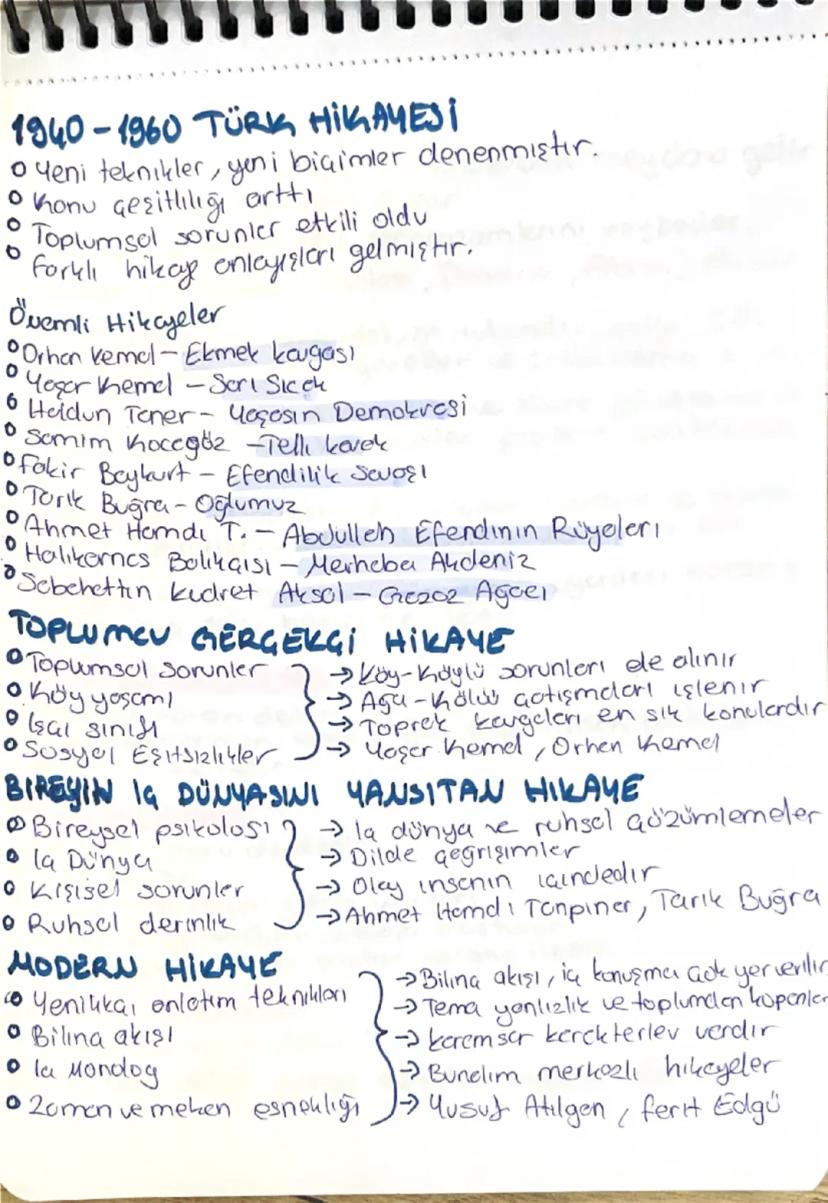 1940-1960 TÜRK HİKAYESİ
o Yeni teknikler, yeni biçimler denenmiştir.
o Konu çeşitliliği arttı
o Toplumsal sorunlar etkili oldu
o farklı hikaye anlayışları gelmiştir.
Önemli Hikayeler
o Orhan Kemal - Ekmek kavgası
o Yaşar Kemal - Sarı Sıcak
o Haldun Taner - Yaşasın Demokrasi
o Samim Kocagöz - Telli kavak
o Fakir Baykurt - Efendilik Savaşı
o Tarık Buğra - Oğlumuz
o Ahmet Hamdi T. - Abdullah Efendinin Rüyaları
o Halikarnas Balıkçısı - Merhaba Akdeniz
o Sabahattin Kudret Aksal - Gazoz Ağacı
TOPLUMCU GERÇEKÇİ HİKAYE
o Toplumsal sorunlar → Köy-Köylü sorunları ele alınır
o Köy yaşamı → Ağa-Kölüü çatışmaları işlenir
o İşçi sınıfı → Toprak kavgaları en sık konulardır
o Sosyal Eşitsizlikler → Yaşar Kemal, Orhan Kemal
BİREYİN İÇ DÜNYASINI YANSITAN HİKAYE
o Bireysel psikoloji → İç dünya ve ruhsal çözümlemeler
o İç Dünya → Dilde çağrışımlar
o Kişisel sorunlar → Olay insanın içindedir
o Ruhsal derinlik → Ahmet Hamdi Tanpınar, Tarık Buğra
MODERN HİKAYE
o Yenilikçi anlatım teknikleri → Bilinç akışı, iç konuşma çok yer verilir
o Bilinç akışı → Tema yanlızlık ve toplumdan kopanlar
o İç Monolog → karamsar karakterler vardır
o Zaman ve mekan esnekliği → Bunalım merkezli hikayeler
→ Yusuf Atılgan, ferit Edgü